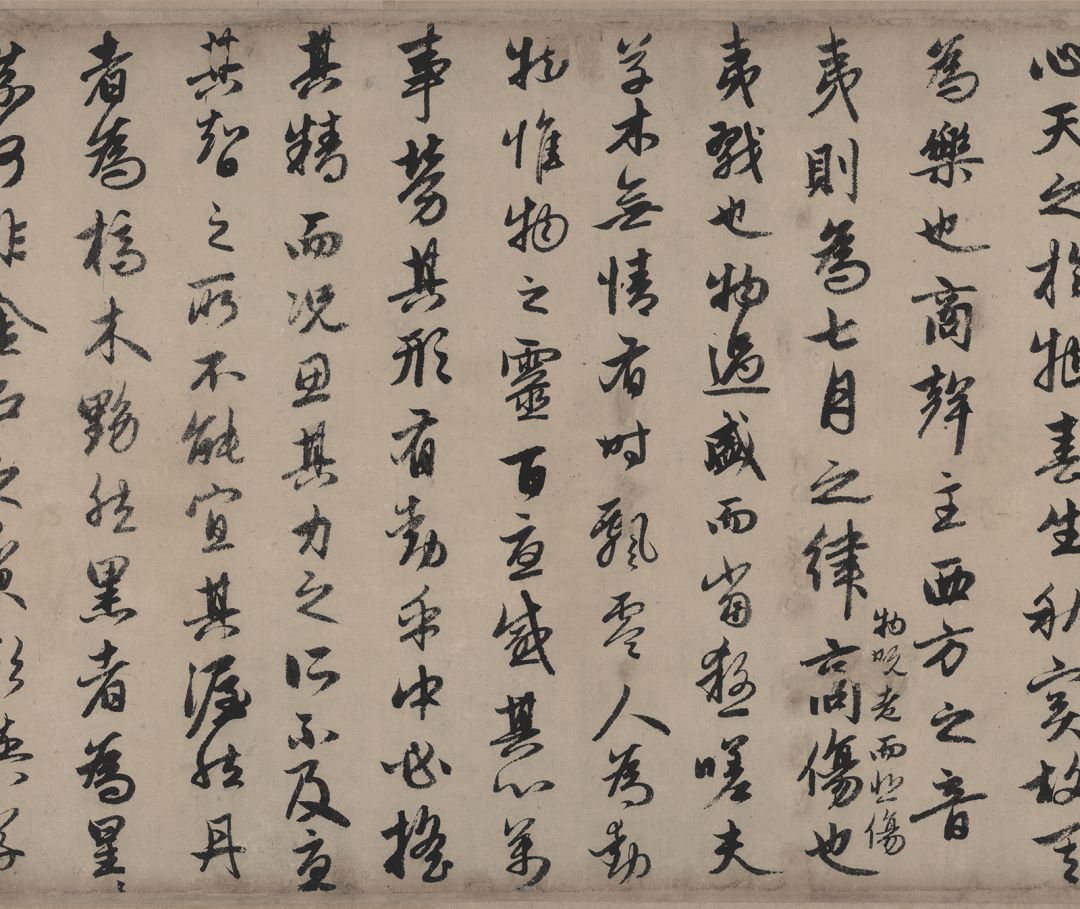 心天之於物春生秋實故其
為樂也商聲主西方之音
夷則為七月之律商傷也
物既老而悲傷
夷戮也物過盛而當殺嗟夫
草木無情有時飄零人為動
物惟物之靈百憂感其心萬
事勞其形有動乎中必搖
其精而況思其力之所不及憂
其智之所不能宜其渥然丹
者為槁木黟然黑者為星〻
奈何非金石之質欲與草